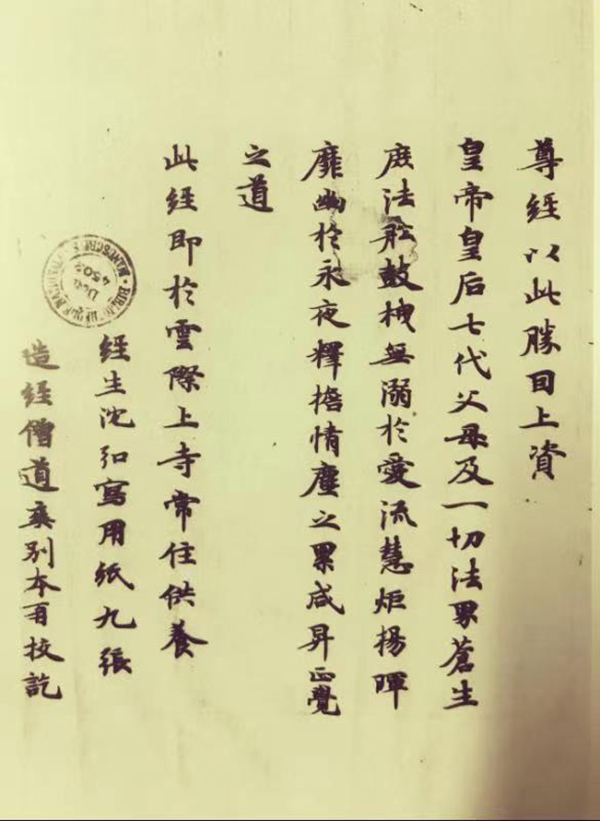 尊經以此勝囙上資
皇帝皇后七代父母及一切法界蒼生
庶法舩鼓栧無溺於愛流慧炬揚暉
靡幽於永夜釋擔情塵之累咸昇正覺
之道
此經即於雲際上寺常住供養
經生沈弘寫用紙九張
造經僧道爽別本再校訖
DON
4502